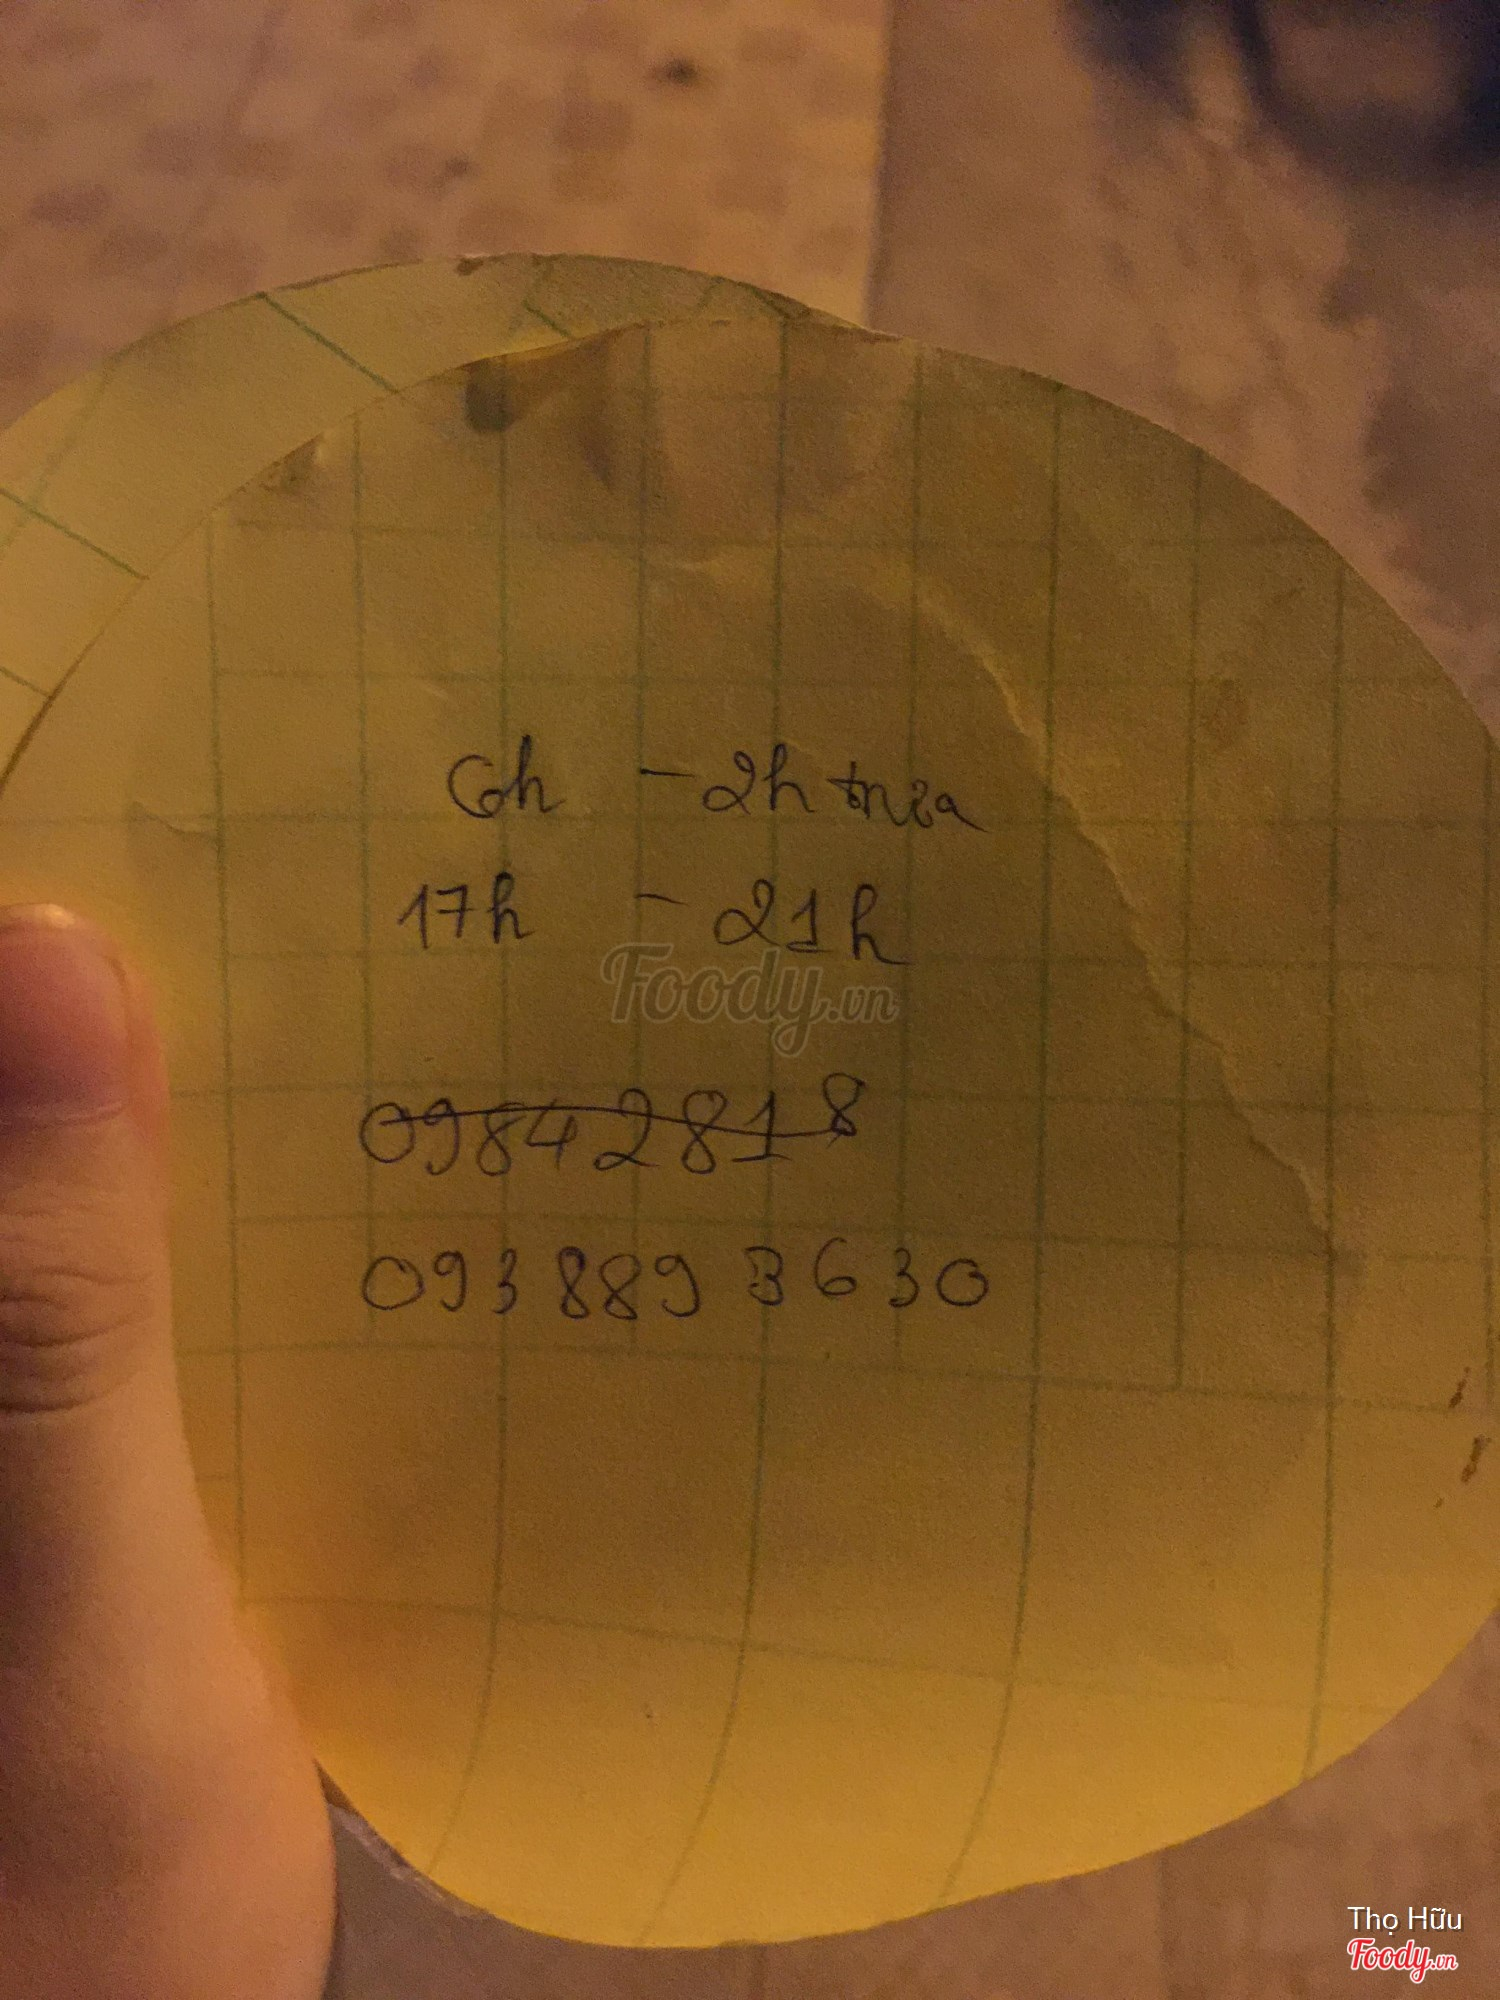 6h - 2h trưa
17h - 21h
Foody.vn
09842818
0938893630
Thọ Hữu
Foody.vn